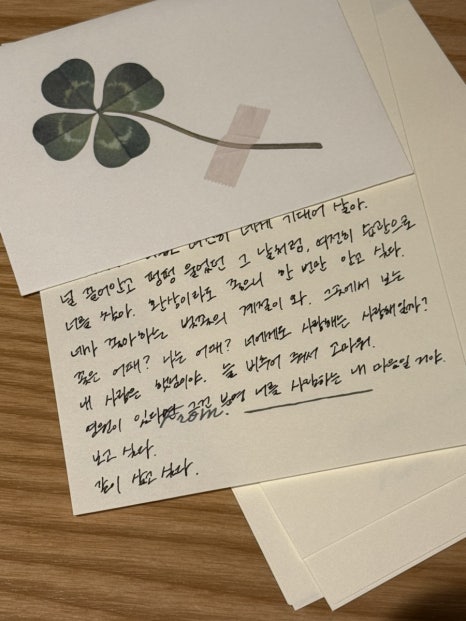 여전히 너에게 기대어 살아.
널 끌어안고 펑펑 울었던 그 날처럼, 여전히 습관으로
너를 찾아. 환상이라도 좋으니 한 번만 안고 싶다.
네가 좋아하는 벚꽃의 계절이 와. 그곳에서 보는
꽃은 어때? 나는 어때? 너에게도 사랑해는 사랑해일까?
내 사랑은 햇님이야. 늘 비추어 줘서 고마워.
영원이 있다면 그건 분명 너를 사랑하는 내 마음일 거야.
From.
보고 싶다.
같이 살고 싶다.